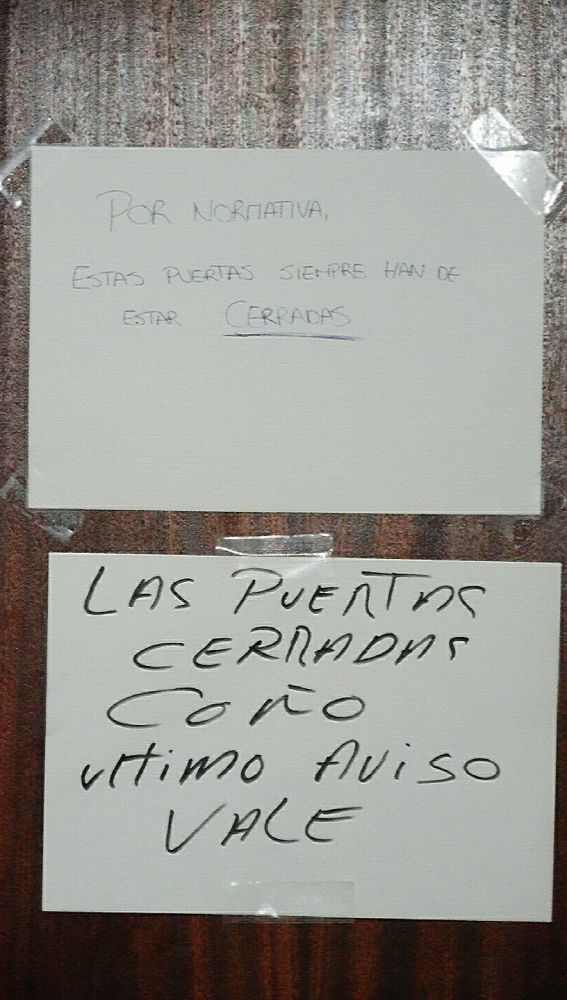 POR NORMATIVA,
ESTAS PUERTAS SIEMPRE HAN DE
ESTAR CERRADAS
LAS PUERTAS
CERRADAS
COÑO
ultimo Aviso
VALE